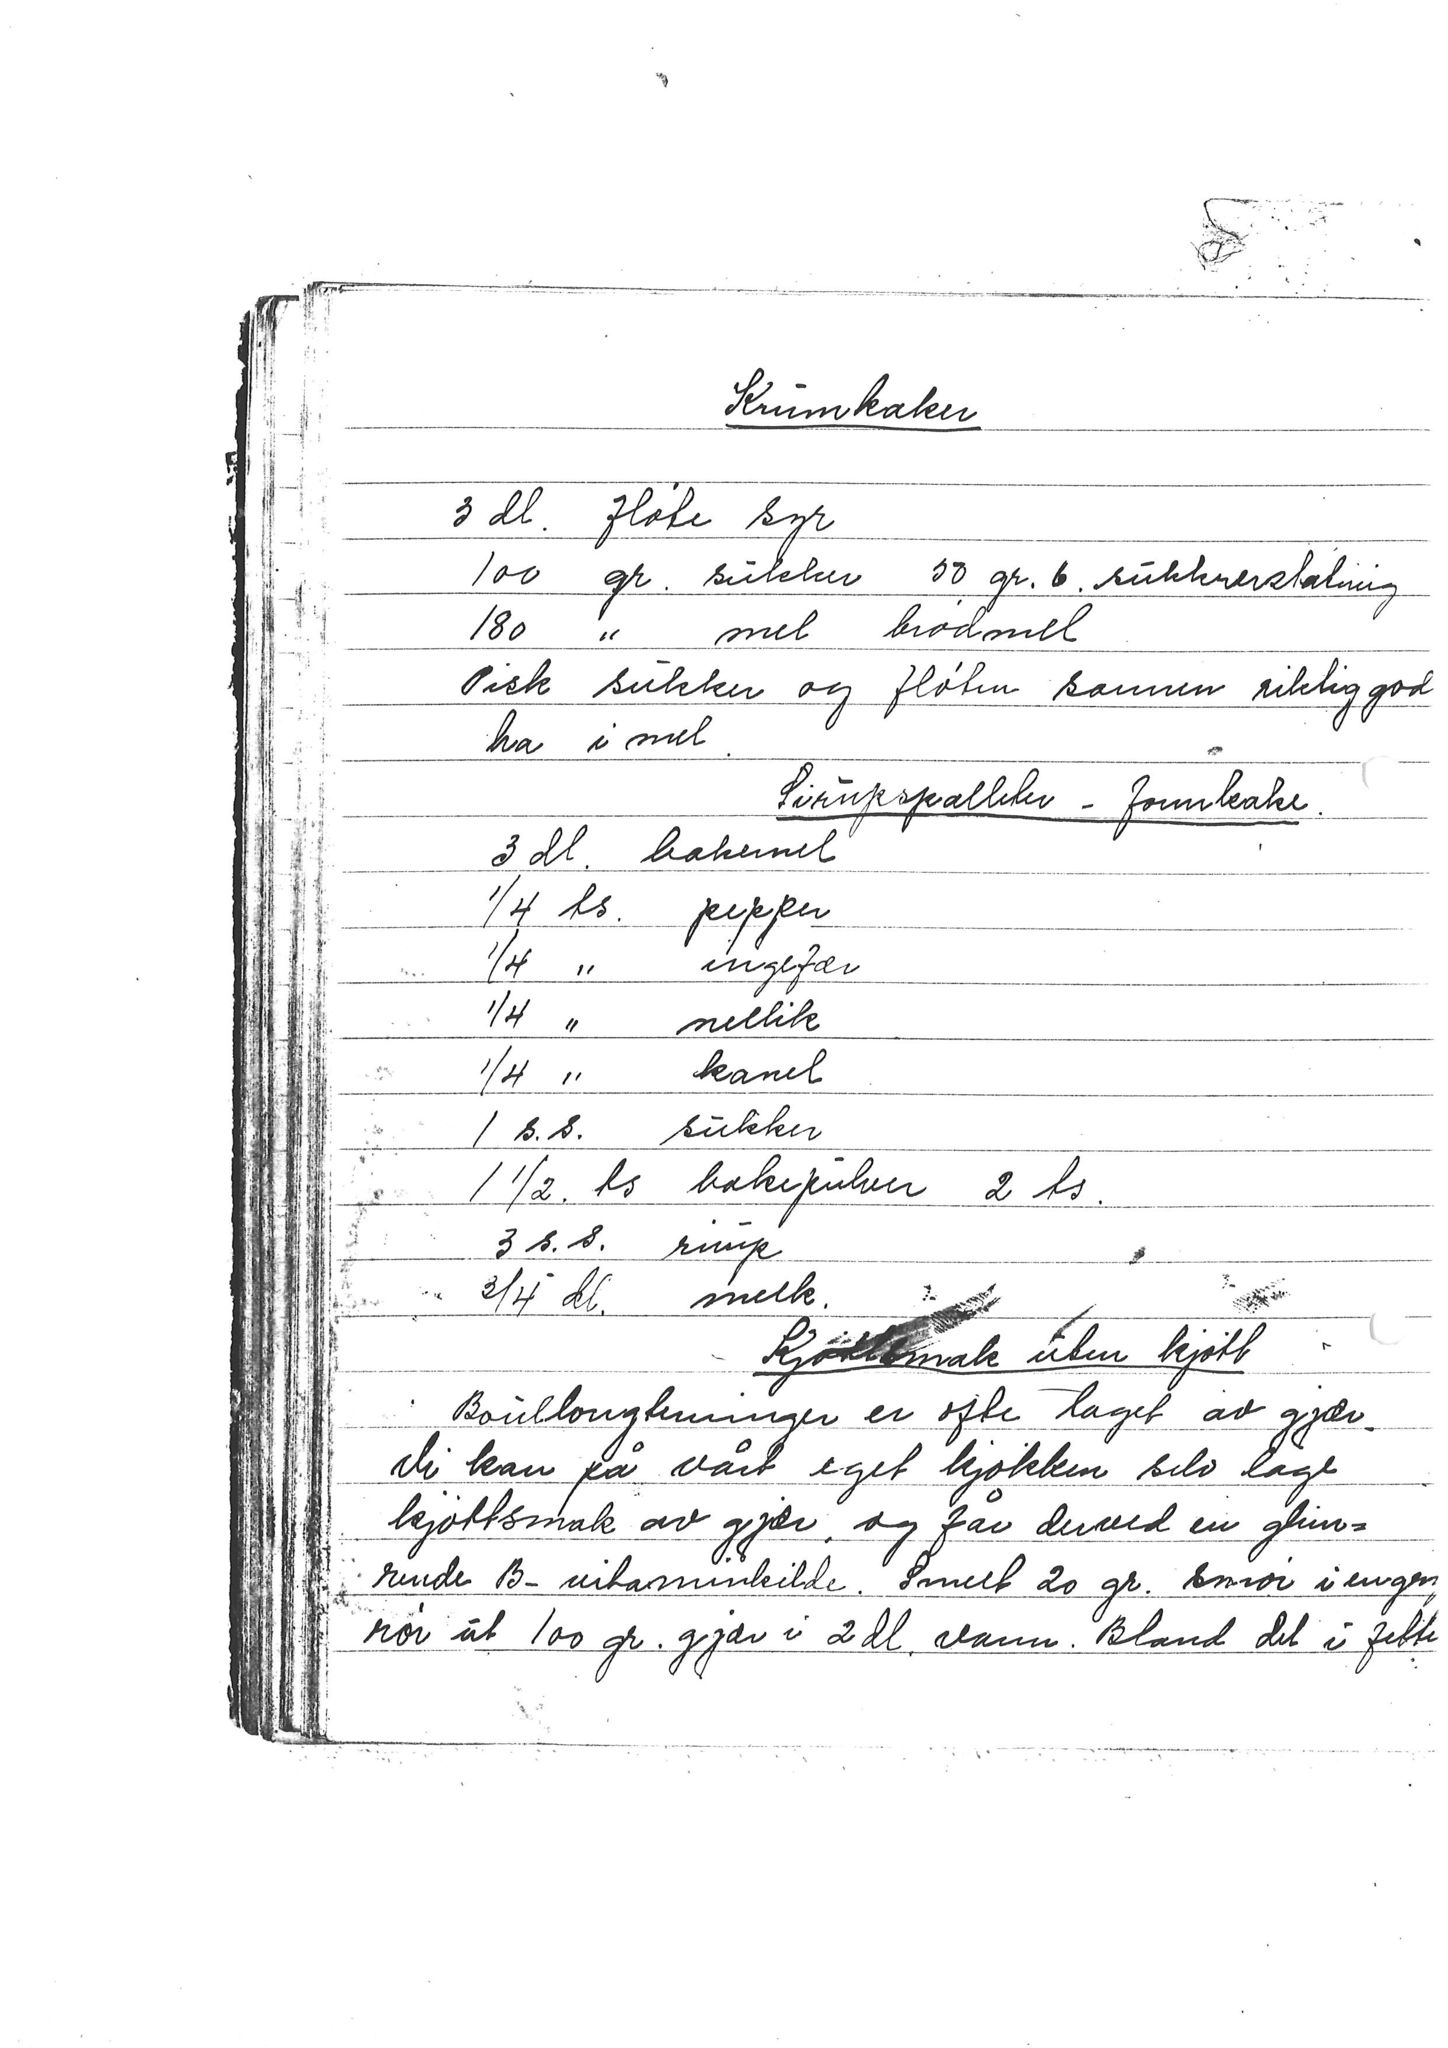 Krumkaker
3 dl. fløte syr
100 gr. sukker 50 gr. 6. sukkererstatning
180 " mel brødmel
Pisk sukker og fløten sammen riktig god
ha i mel.
Sirupspalleter - formkake.
3 dl. bakemel
1/4 ts. pepper
1/4 " ingefær
1/4 " nellik
1/4 " kanel
1 s.s. sukker
1 1/2. ts bakepulver 2 ts.
3 s.s. sirup
3/4 dl. melk.
Kjøttsmak uten kjøtt
Boullongterninger er ofte laget av gjær.
Vi kan på vårt eget kjøkken selv lage
kjøttsmak av gjær, og får derved en glim=
rende B- vitaminkilde. Smelt 20 gr. smør i en gry
rør ut 100 gr. gjær i 2 dl. vann. Bland det i fette